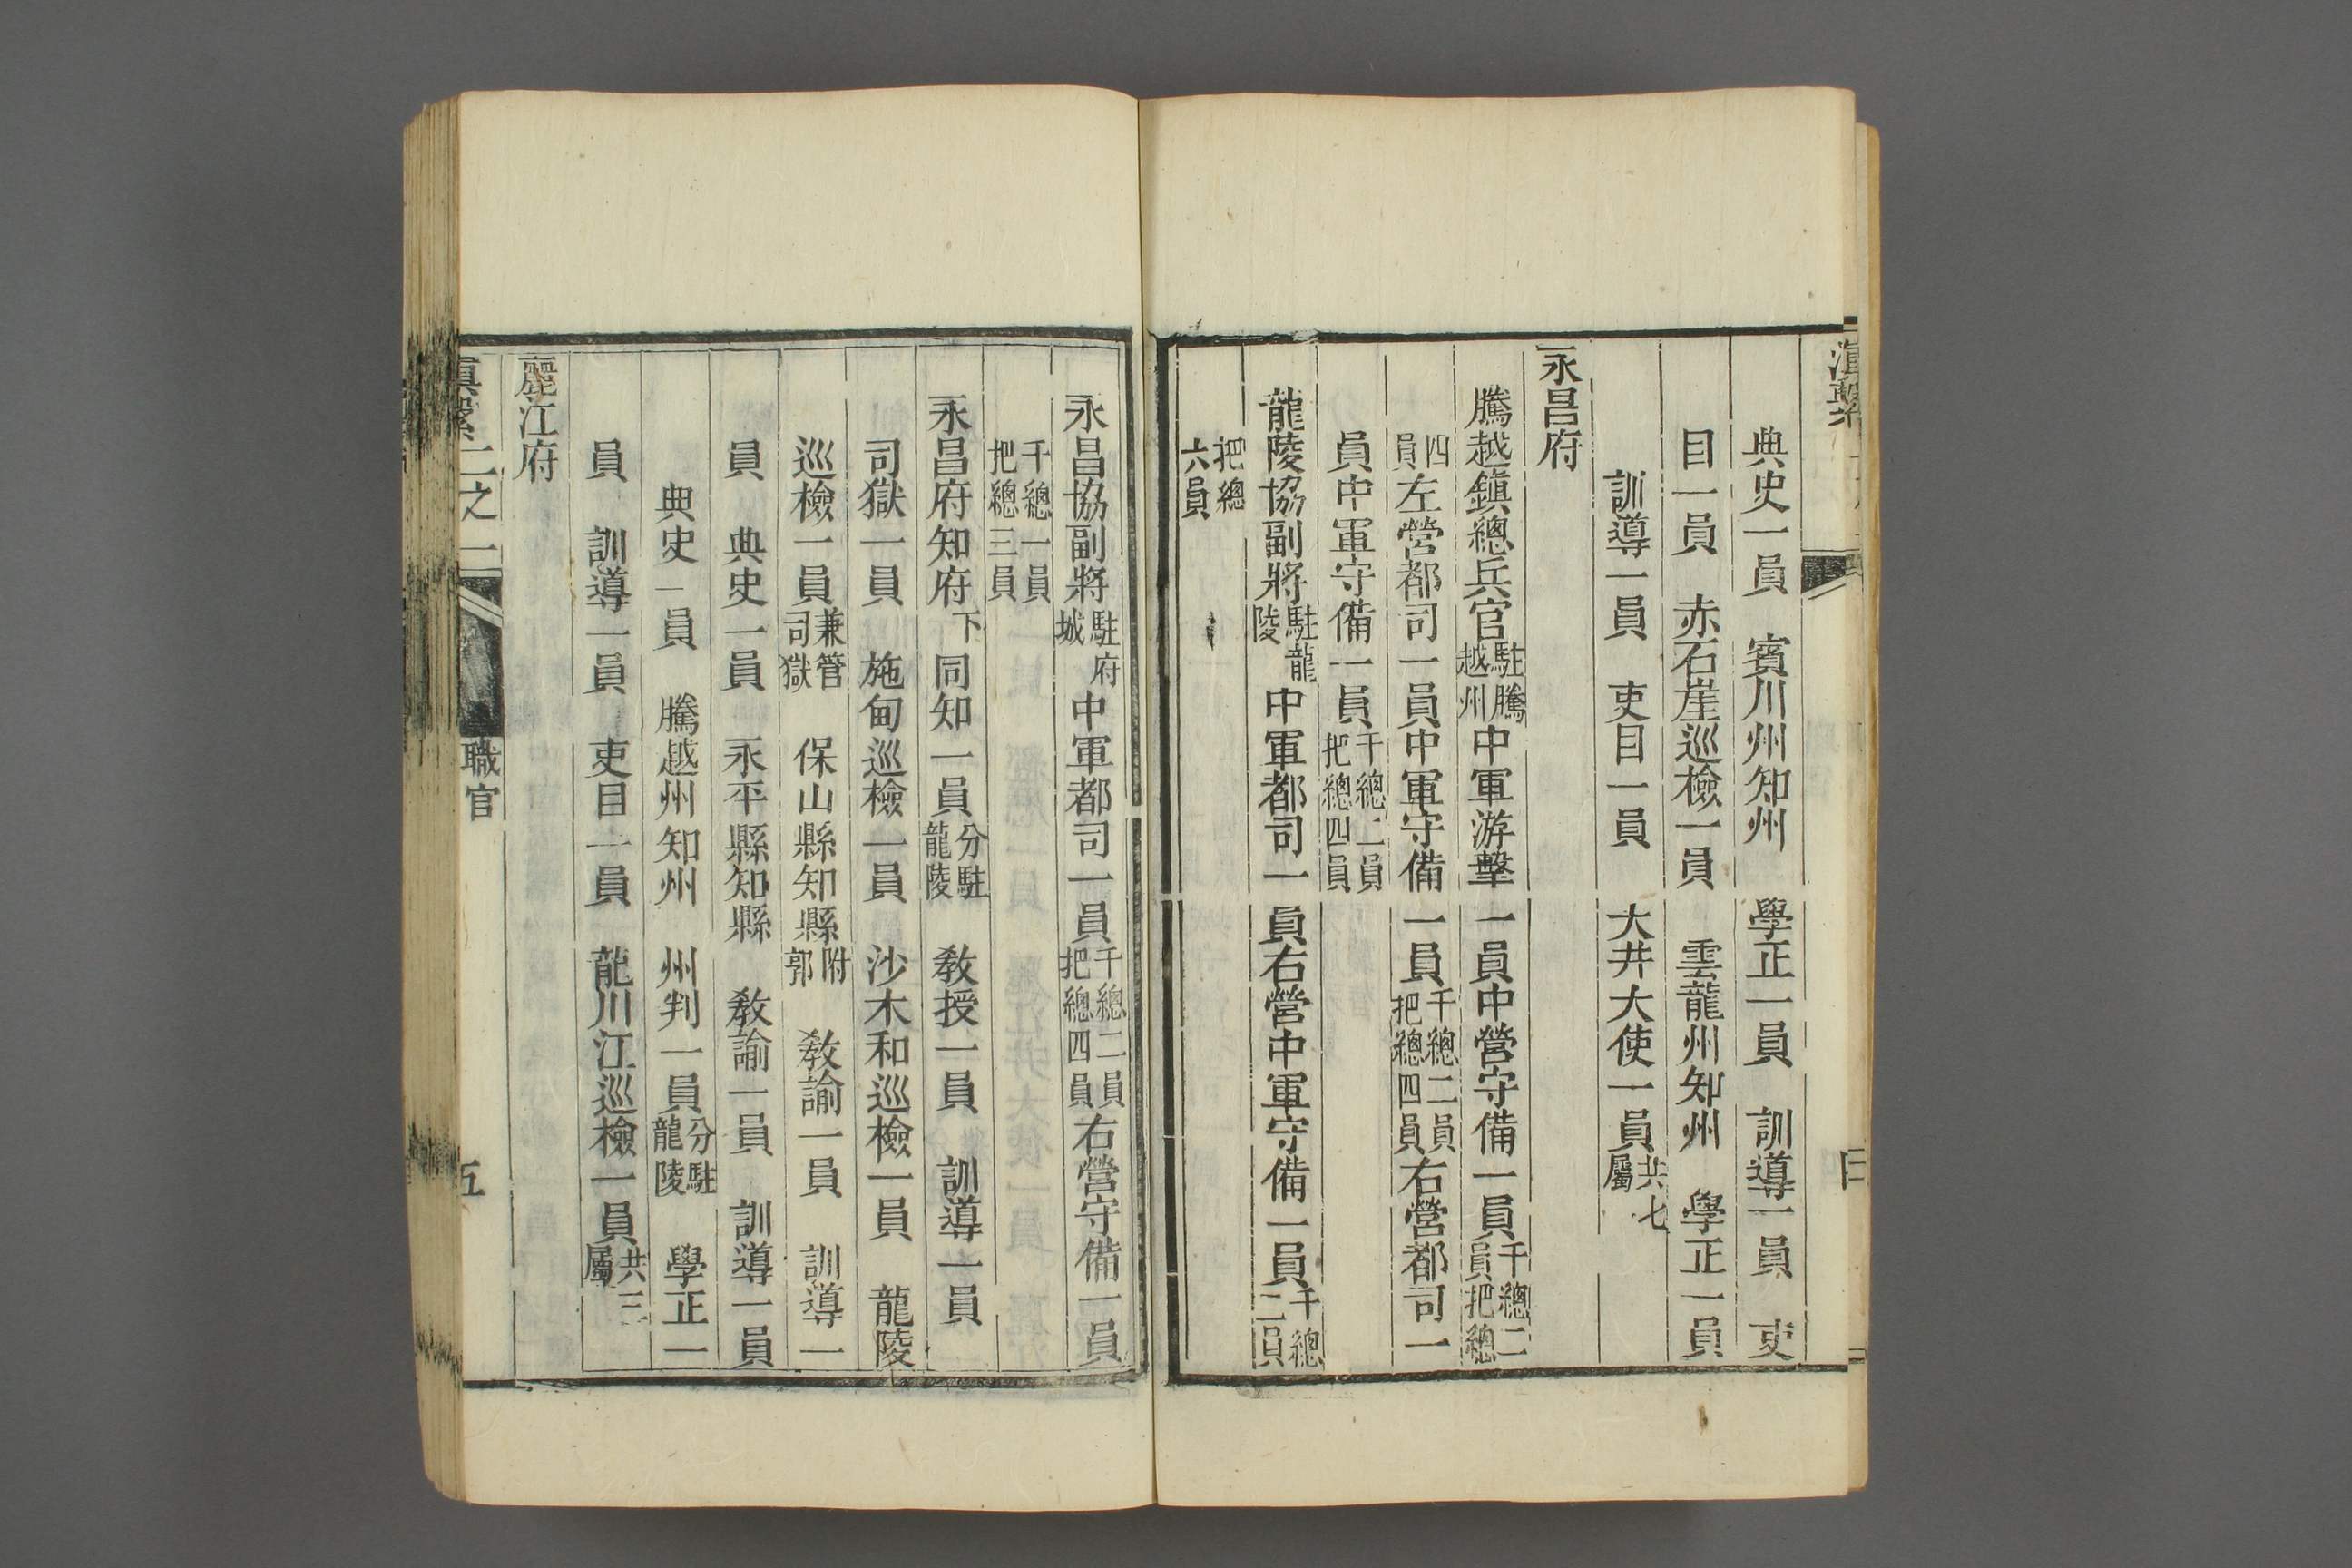 滇繫
典史一員　賓川州知州　學正一員　訓導一員　吏
目一員　赤石崖巡檢一員　雲龍州知州　學正一員
訓導一員　吏目一員　大井大使一員共七屬
永昌府
騰越鎮總兵官駐騰越州中軍游擊一員中營守備一員千總二員把總
四員左營都司一員中軍守備一員千總二員把總四員右營都司一
員中軍守備一員千總二員把總四員
龍陵協副將駐龍陵中軍都司一員右營中軍守備一員千總二員
把總六員
永昌協副將駐府城中軍都司一員千總二員把總四員右營守備一員
千總一員把總三員
永昌府知府下同知一員分駐龍陵　教授一員　訓導一員
司獄一員　施甸巡檢一員　沙木和巡檢一員　龍陵
巡檢一員兼管司獄　保山縣知縣附郭　教諭一員　訓導一
員　典史一員　永平縣知縣　教諭一員　訓導一員
典史一員　騰越州知州　州判一員分駐龍陵　學正一
員　訓導一員　吏目一員　龍川江巡檢一員共三屬
麗江府
滇繫二之一　職官　五